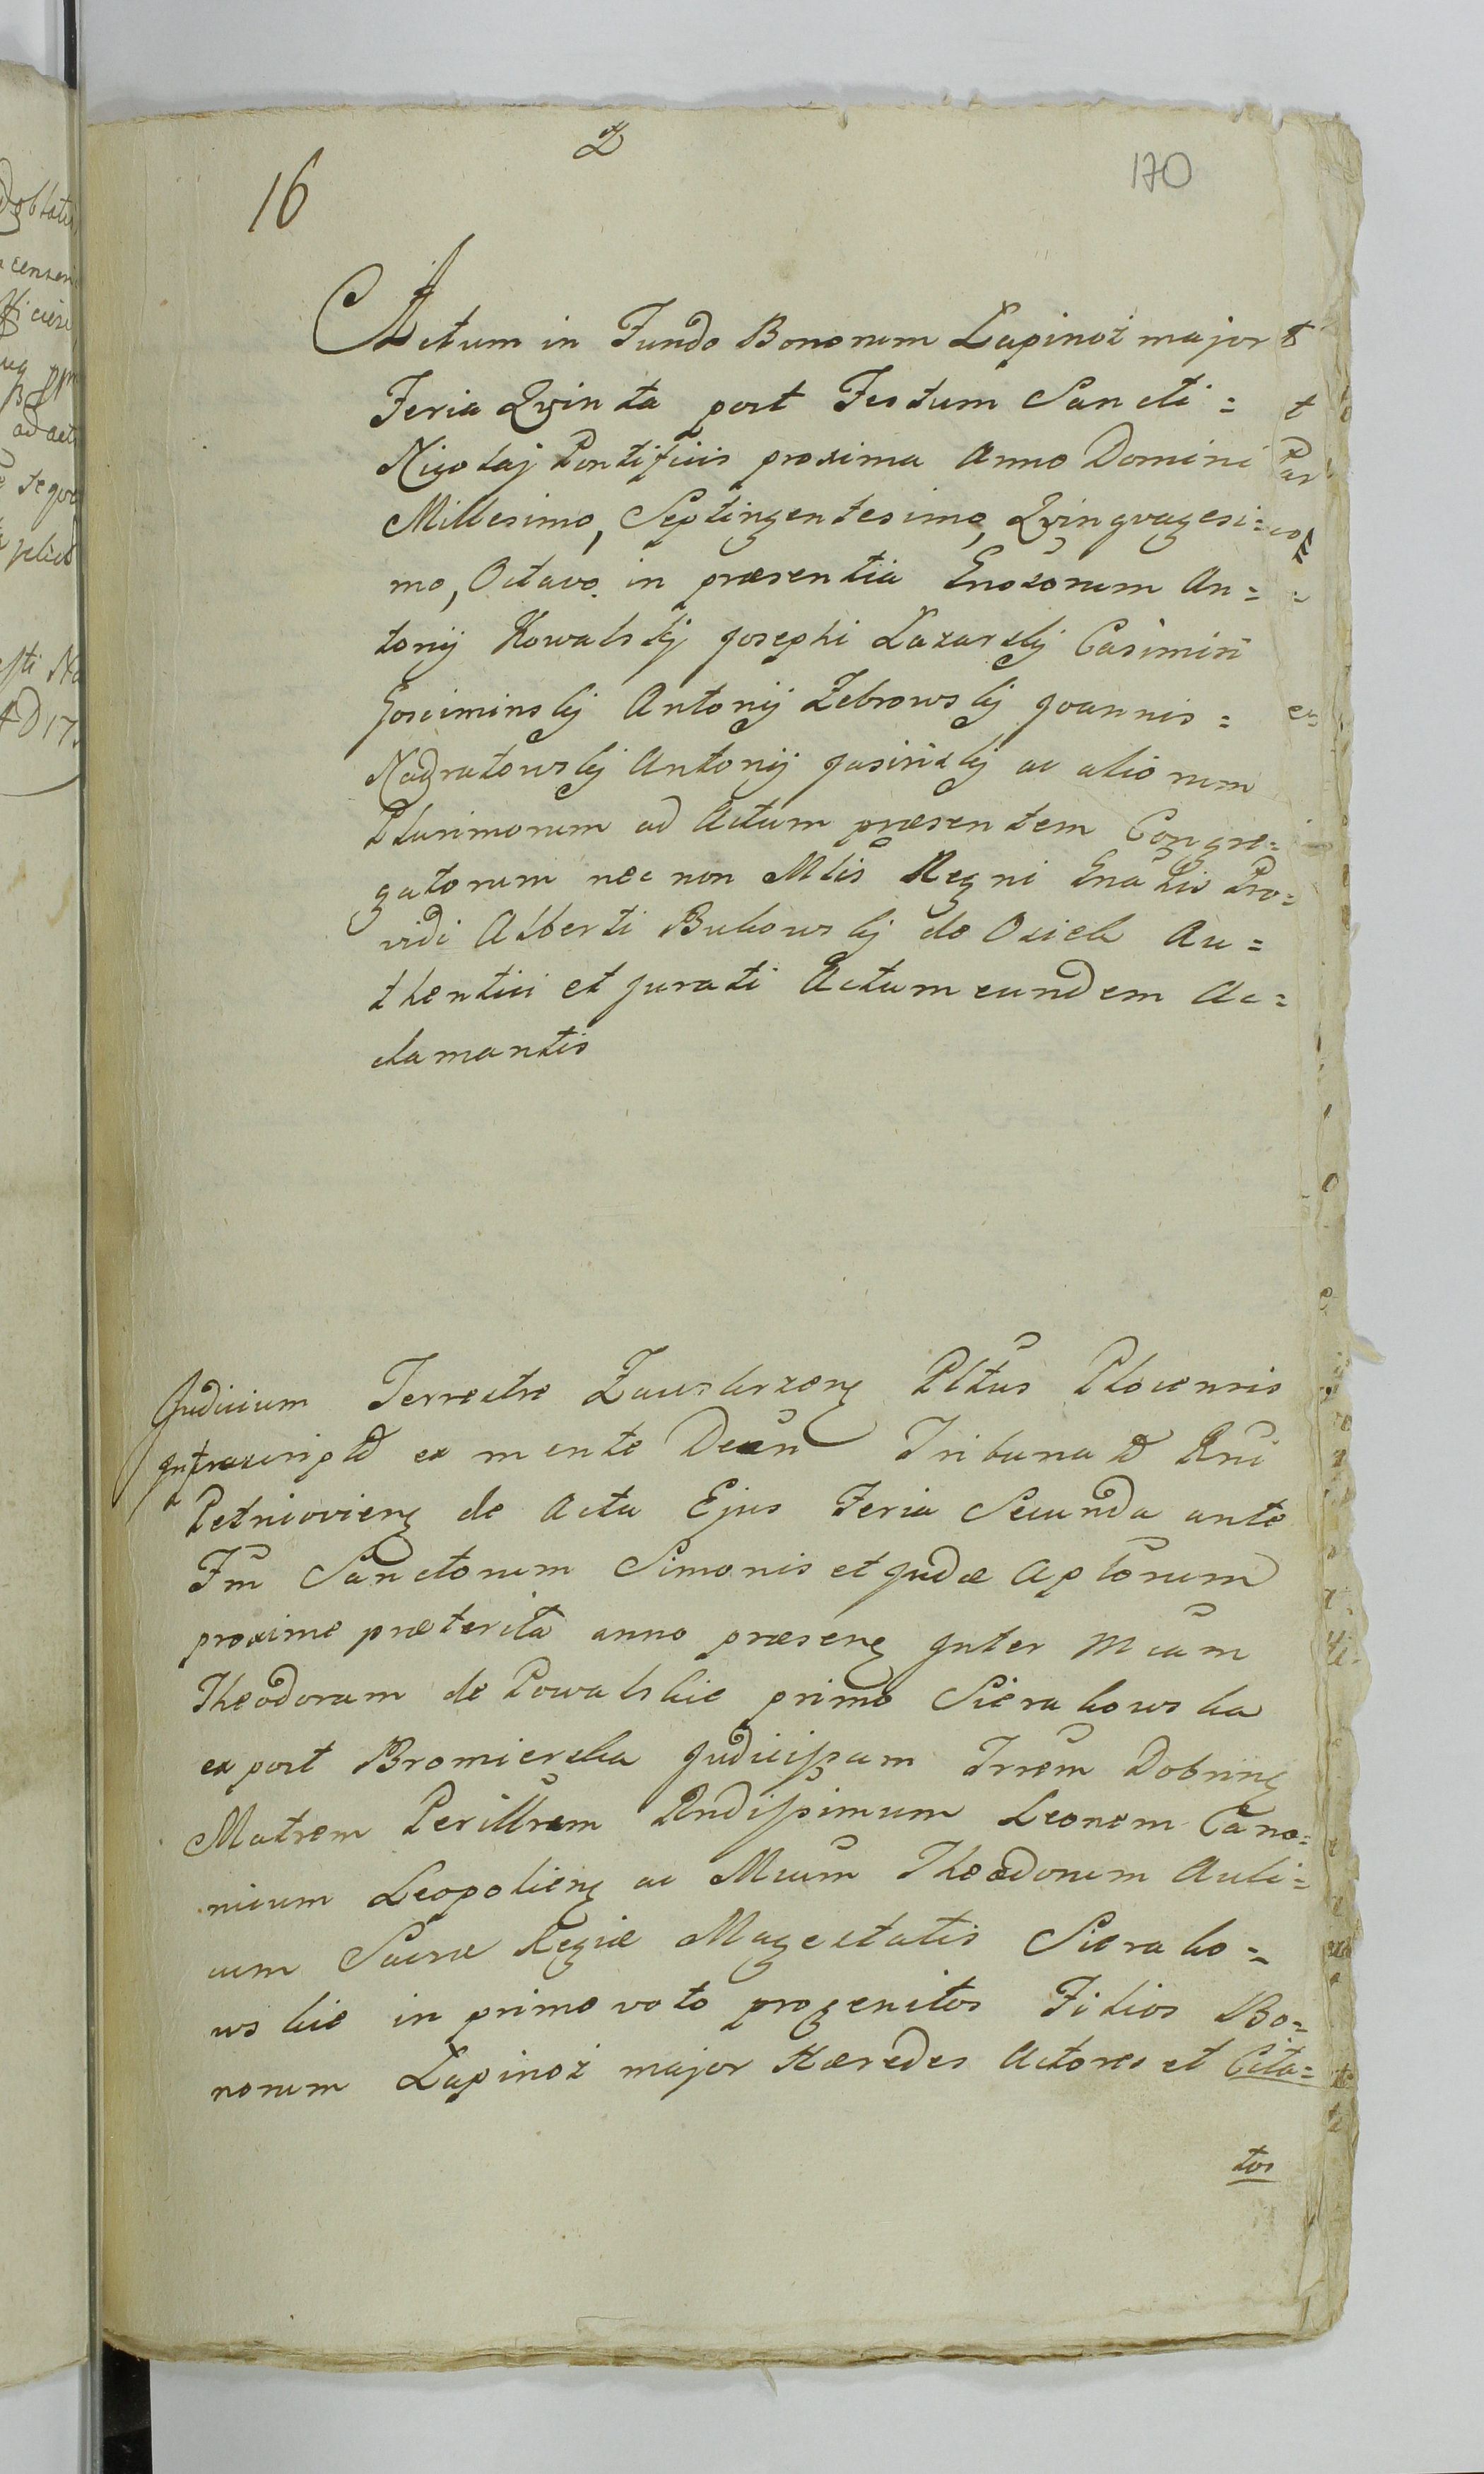 16
2
170
Actum in Fundo Bonorum Łapinoż major
Feria Qvinta post Festum Sancti =
Nicolaj Pontificis proxima Anno Domini
Millesimo, Septingentesimo, Qvinqvagesi=
mo, Octavo. in præsentia Gnosorum An=
tonij Kowalskij Josephi Łazarskij Casimiri
Gosciminskij Antonij Zebrowskij Joannis =
Nadratowskij Antonij Jasinskij ac aliorum
Plurimorum ad Actum præsentem Congre=
gatorum nec non Mlis Regni Gnalis Pro=
vidi Alberti Bukowskij de Osiek Au=
thentici et Jurati Actum eundem Ac=
clamantis
Judicium Terrestre Zawskrzen Pltus Plocensis
Infrascript ex mente Decr Tribunal Rni
Petricovien de Actu Ejus Feria Secunda ante
Fm Sanctorum Simonis et Judæ Aplorum
proxime præterita anno præsen Inter Mcam
Theodoram de Powalskie primo Sierakowska
ex post Bromierska Judicissam Trrem Dobrin
Matrem Perillrem Rndissimum Leonem Cano=
nicum Leopolien ac Mcum Theodorum Auli=
cum Sacræ Regiæ Magestatis Sierako=
wskie in primo voto progenitos Filios Bo=
norum Łapinoż major Hæredes Actores et Cita=
tos